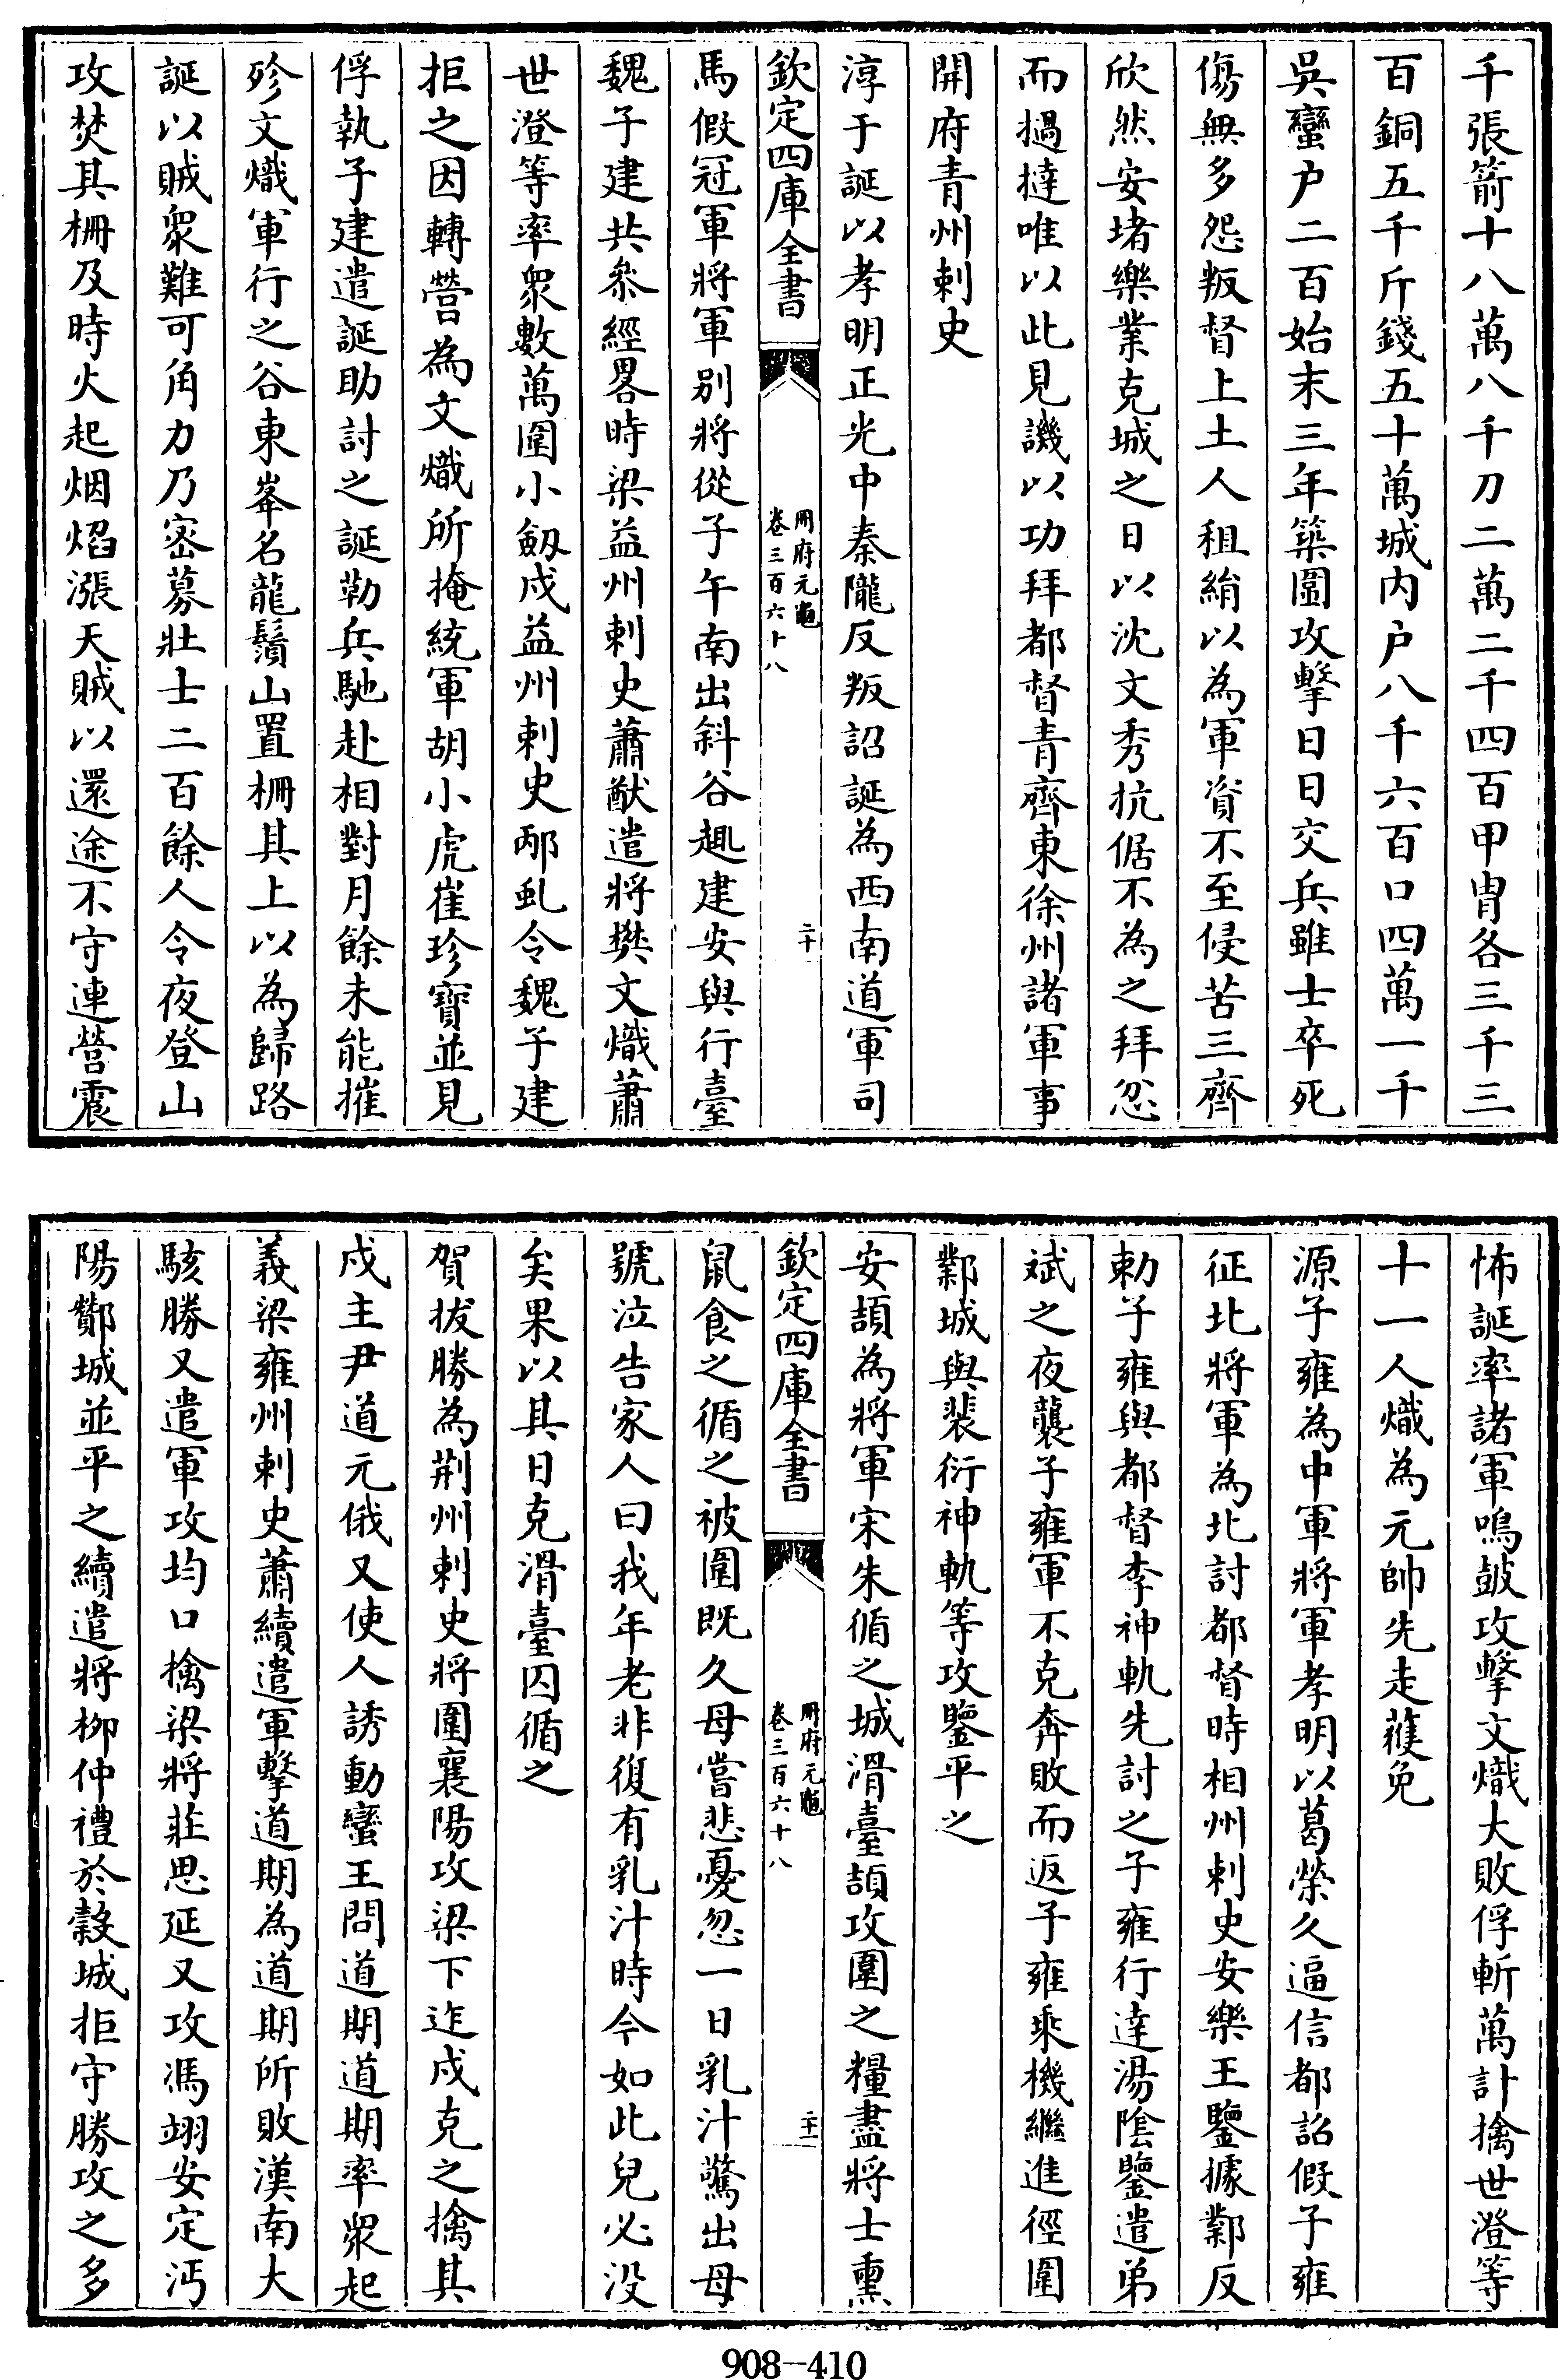 千張箭十八萬八千刀二萬二千四百甲胄各三千三
百銅五千斤錢五十萬城内户八千六百口四萬一千
吳蠻户二百始末三年築圍攻擊日日交兵雖士卒死
傷無多怨叛督上土人租絹以為軍資不至侵苦三齊
欣然安堵樂業克城之日以沈文秀抗倨不為之拜忿
而撾撻唯以此見譏以功拜都督青齊東徐州諸軍事
開府青州刺史
淳于誕以孝明正光中秦隴反叛詔誕為西南道軍司
欽定四庫全書
冊府元龜
卷三百六十八
二十
馬假冠軍將軍别將從子午南出斜谷趣建安與行臺
魏子建共叅經畧時梁益州刺史蕭猷遣將樊文熾蕭
世澄等率衆數萬圍小劔戍益州刺史邴虬令魏子建
拒之因轉營為文熾所掩統軍胡小虎崔珍寶並見
俘執子建遣誕助討之誕勒兵馳赴相對月餘未能摧
殄文熾軍行之谷東峯名龍鬚山置柵其上以為歸路
誕以賊衆難可角力乃密募壯士二百餘人令夜登山
攻焚其柵及時火起烟焰漲天賊以還途不守連營震
怖誕率諸軍鳴鼓攻擊文熾大敗俘斬萬計擒世澄等
十一人熾為元帥先走獲免
源子雍為中軍將軍孝明以葛榮久逼信都詔假子雍
征北將軍為北討都督時相州刺史安樂王鑒據鄴反
勅子雍與都督李神軌先討之子雍行達湯陰鑒遣弟
斌之夜襲子雍軍不克奔敗而返子雍乘機繼進徑圍
鄴城與裴衍神軌等攻鑒平之
安頡為將軍宋朱循之城滑臺頡攻圍之糧盡將士熏
欽定四庫全書
冊府元龜
卷三百六十八
二十一
鼠食之循之被圍既久母嘗悲憂忽一日乳汁驚出母
號泣告家人曰我年老非復有乳汁時今如此兒必没
矣果以其日克滑臺囚循之
賀拔勝為荆州刺史將圍襄陽攻梁下迮戍克之擒其
戍主尹道元俄又使人誘動蠻王問道期道期率衆起
義梁雍州刺史蕭續遣軍擊道期為道期所敗漢南大
駭勝又遣軍攻均口擒梁將莊思延又攻馮翊安定沔
陽酇城並平之續遣將柳仲禮於穀城拒守勝攻之多
908-410